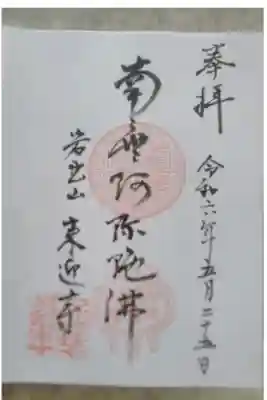 奉拝
令和六年五月二十五日
南無阿弥陀佛
岩出山
来迎寺